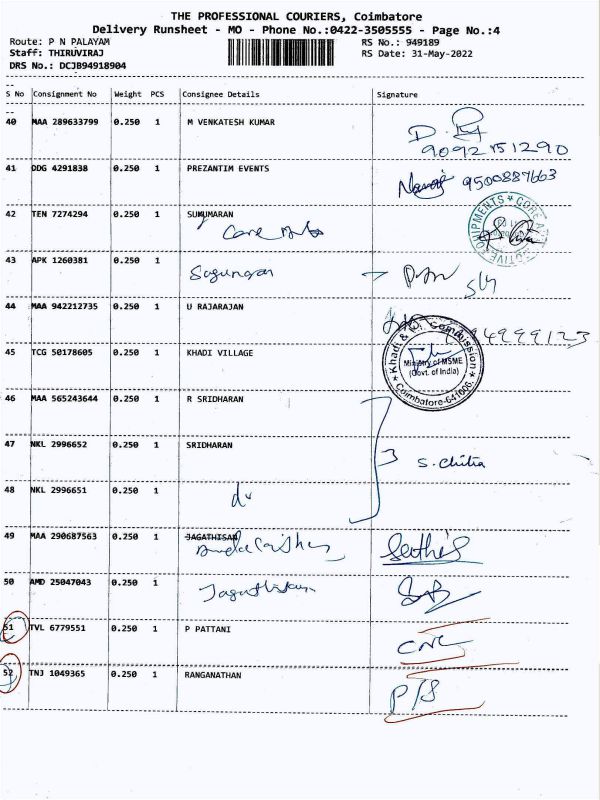 THE PROFESSIONAL COURIERS, Coimbatore
Delivery Runsheet - MO - Phone No.:0422-3505555 - Page No.:4
Route: P N PALAYAM RS No.: 949189
Staff: THIRUVIRAJ RS Date: 31-May-2022
DRS No.: DCJB94918904
S No Consignment No Weight PCS Consignee Details Signature
40 MAA 289633799 0.250 1 M VENKATESH KUMAR
9092151290
41 DDG 4291838 0.250 1 PREZANTIM EVENTS 9500887663
42 TEN 7274294 0.250 1 SUKUMARAN
43 APK 1260381 0.250 1
44 MAA 942212735 0.250 1 U RAJARAJAN
45 TCG 50178605 0.250 1 KHADI VILLAGE
Ministry of MSME
(Govt. of India)
Coimbatore-641006.
46 MAA 565243644 0.250 1 R SRIDHARAN
47 NKL 2996652 0.250 1 SRIDHARAN
3 S. Chitra
48 NKL 2996651 0.250 1
49 MAA 290687563 0.250 1 JAGATHISAN
50 AMD 25047043 0.250 1
51 TVL 6779551 0.250 1 P PATTANI
CNC
52 TNJ 1049365 0.250 1 RANGANATHAN
P/S